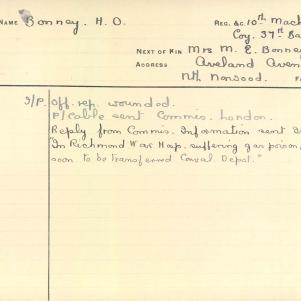 NAME Bonney, H. O.
REG. &C. 10th Mach
Coy. 37th Ba
NEXT OF KIN Mrs M. E. Bonne
ADDRESS Aveland Aven
Nth Norwood.
Off. rep. wounded.
P/Cable sent Commis. London.
Reply from Commis. Information sent
"In Richmond War Hosp. suffering gas poison,
soon to be transferred Conval Depot."